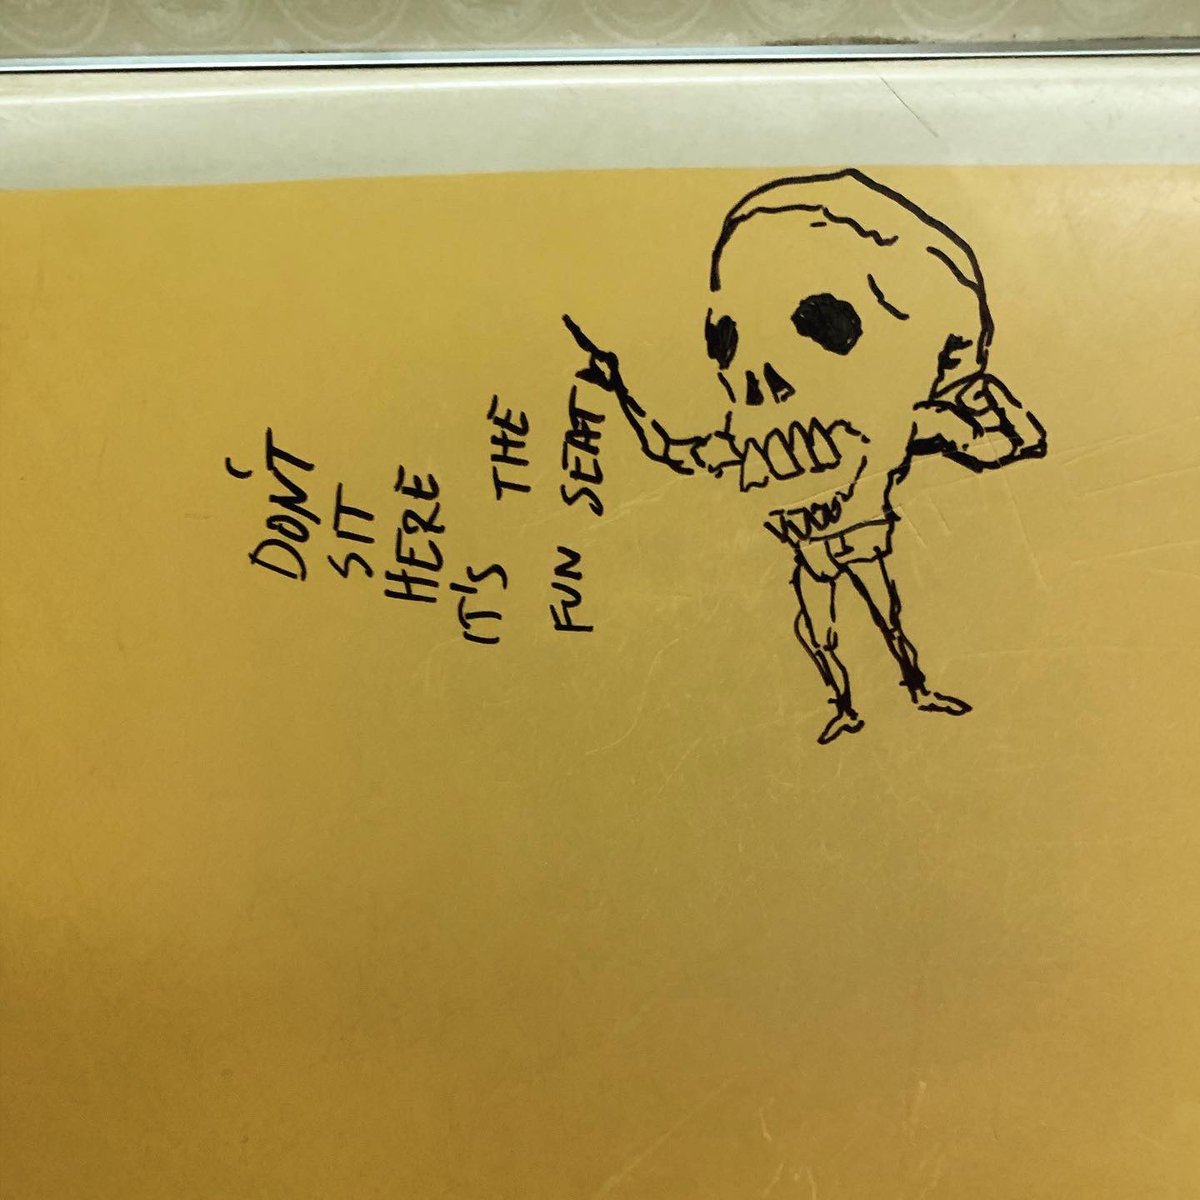 DON'T
SIT
HERE
IT'S THE
FUN SEAT